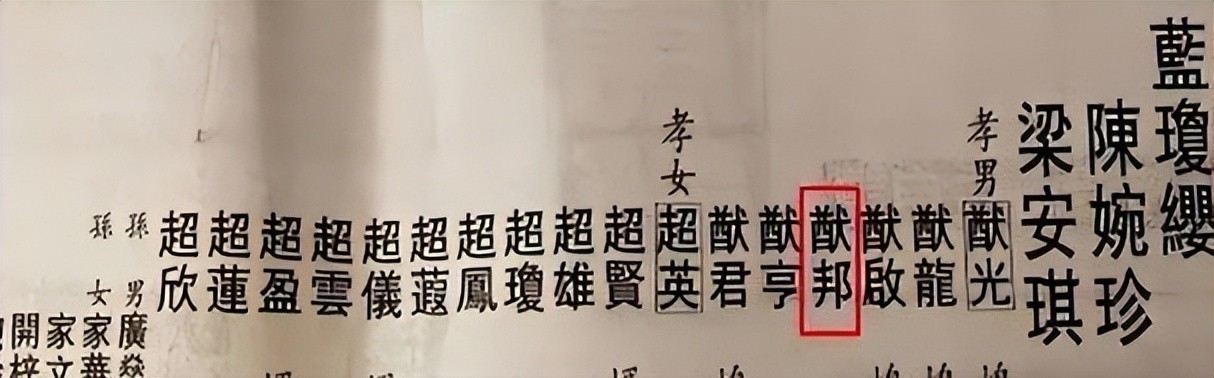 藍瓊纓
陳婉珍
梁安琪
孝男猷光
猷龍
猷啟
猷邦
猷亨
猷君
孝女超英
超賢
超雄
超瓊
超鳳
超蕸
超儀
超雲
超盈
超蓮
超欣
孫男廣燊
孫女家華
家文
開梓